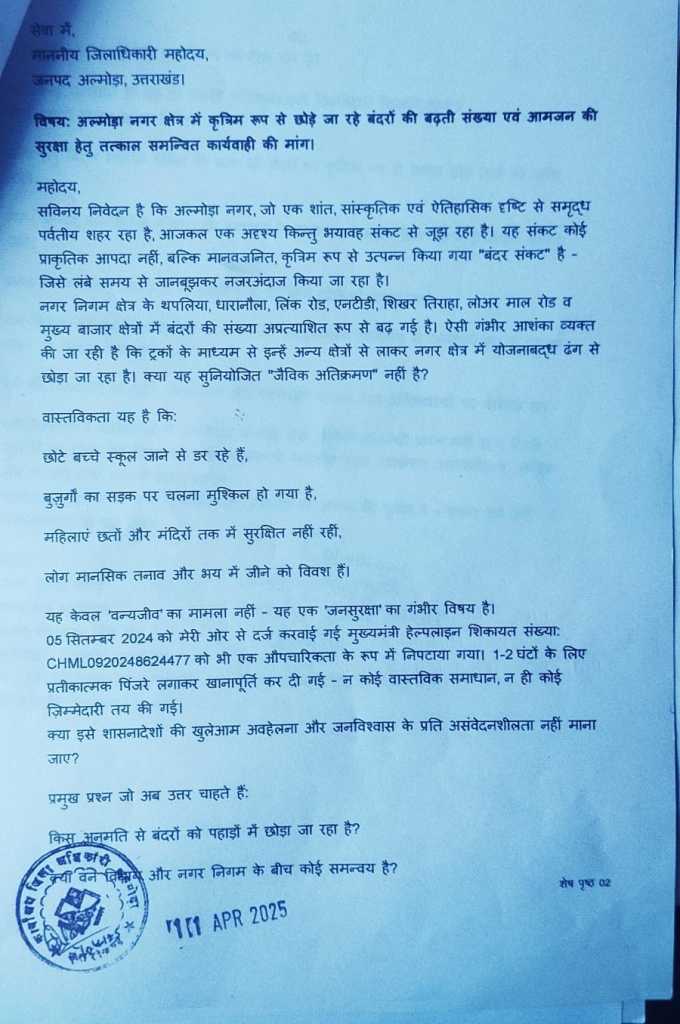 सेवा में,
माननीय जिलाधिकारी महोदय,
जनपद अल्मोड़ा, उत्तराखंड।
विषय: अल्मोड़ा नगर क्षेत्र में कृत्रिम रूप से छोड़े जा रहे बंदरों की बढ़ती संख्या एवं आमजन की
सुरक्षा हेतु तत्काल समन्वित कार्यवाही की मांग।
महोदय,
सविनय निवेदन है कि अल्मोड़ा नगर, जो एक शांत, सांस्कृतिक एवं ऐतिहासिक दृष्टि से समृद्ध
पर्वतीय शहर रहा है, आजकल एक अदृश्य किन्तु भयावह संकट से जूझ रहा है। यह संकट कोई
प्राकृतिक आपदा नहीं, बल्कि मानवजनित, कृत्रिम रूप से उत्पन्न किया गया "बंदर संकट" है -
जिसे लंबे समय से जानबूझकर नजरअंदाज किया जा रहा है।
नगर निगम क्षेत्र के थपलिया, धारानौला, लिंक रोड, एनटीडी, शिखर तिराहा, लोअर माल रोड व
मुख्य बाजार क्षेत्रों में बंदरों की संख्या अप्रत्याशित रूप से बढ़ गई है। ऐसी गंभीर आशंका व्यक्त
की जा रही है कि ट्रकों के माध्यम से इन्हें अन्य क्षेत्रों से लाकर नगर क्षेत्र में योजनाबद्ध ढंग से
छोड़ा जा रहा है। क्या यह सुनियोजित "जैविक अतिक्रमण" नहीं है?
वास्तविकता यह है कि:
छोटे बच्चे स्कूल जाने से डर रहे हैं,
बुजुर्गों का सड़क पर चलना मुश्किल हो गया है,
महिलाएं छतों और मंदिरों तक में सुरक्षित नहीं रहीं,
लोग मानसिक तनाव और भय में जीने को विवश हैं।
यह केवल 'वन्यजीव' का मामला नहीं - यह एक 'जनसुरक्षा' का गंभीर विषय है।
05 सितम्बर 2024 को मेरी ओर से दर्ज करवाई गई मुख्यमंत्री हेल्पलाइन शिकायत संख्या:
CHML0920248624477 को भी एक औपचारिकता के रूप में निपटाया गया। 1-2 घंटों के लिए
प्रतीकात्मक पिंजरे लगाकर खानापूर्ति कर दी गई - न कोई वास्तविक समाधान, न ही कोई
ज़िम्मेदारी तय की गई।
क्या इसे शासनादेशों की खुलेआम अवहेलना और जनविश्वास के प्रति असंवेदनशीलता नहीं माना
जाए?
प्रमुख प्रश्न जो अब उत्तर चाहते हैं:
किस अनुमति से बंदरों को पहाड़ों में छोड़ा जा रहा है?
क्या वन विभाग और नगर निगम के बीच कोई समन्वय है?
शेष पृष्ठ 02
कार्यालय जिला अधिकारी
APR 2025